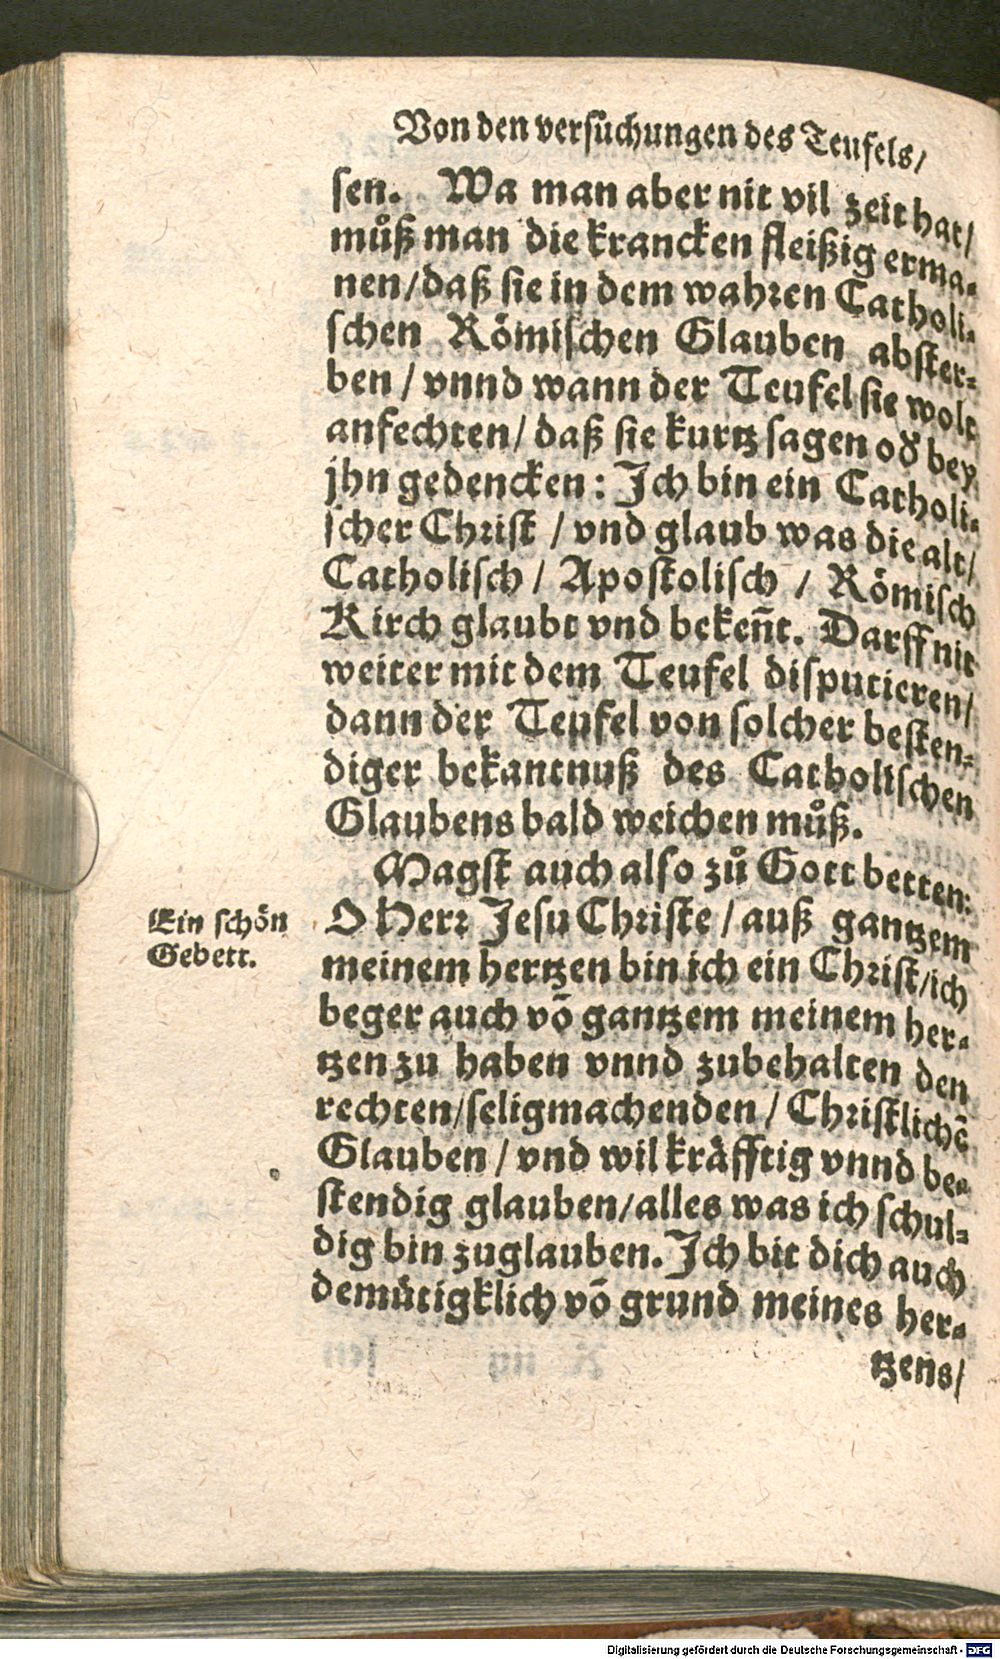 Von den versuchungen des Teufels/
sen. Wa man aber nit vil zeit hat/
můß man die krancken fleißig erma-
nen/daß sie in dem wahren Catholi-
schen Römischen Glauben abster-
ben/vnnd wann der Teufel sie wolt
anfechten/daß sie kurtz sagen oď bey
jhn gedencken: Ich bin ein Catholi-
scher Christ/vnd glaub was die alt/
Catholisch/Apostolisch/Römisch
Kirch glaubt vnd bekeñt. Darff nit
weiter mit dem Teufel disputieren/
dann der Teufel von solcher besten-
diger bekantnuß des Catholischen
Glaubens bald weichen můß.
Magst auch also zů Gott betten:
Ein schön
Gebett.
O Herr Jesu Christe/auß gantzem
meinem hertzen bin ich ein Christ/ich
beger auch võ gantzem meinem her-
tzen zu haben vnnd zubehalten den
rechten/seligmachenden/Christlichẽ
Glauben/vnd wil kräfftig vnnd be-
stendig glauben/alles was ich schul-
dig bin zuglauben. Ich bit dich auch
demütigklich võ grund meines her-
tzens/
Digitalisierung gefördert durch die Deutsche Forschungsgemeinschaft - DFG